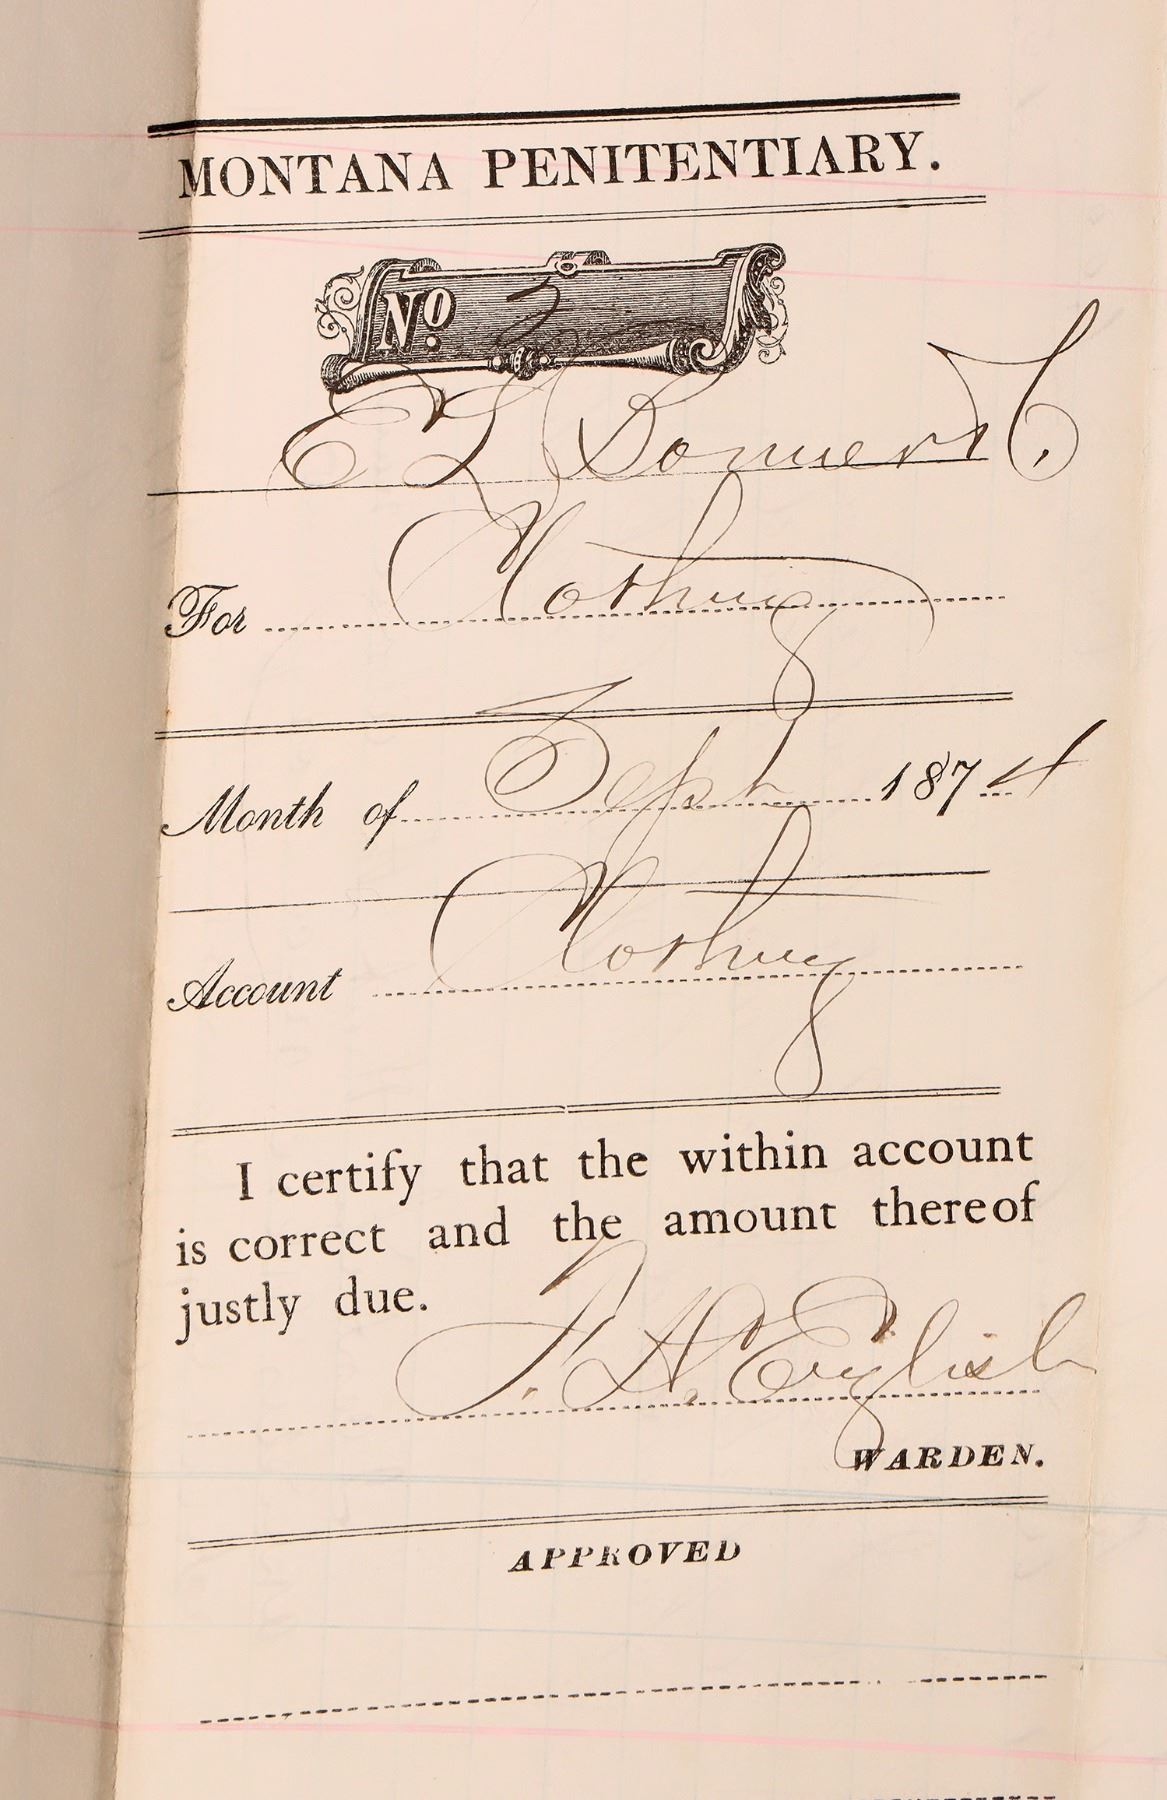 MONTANA PENITENTIARY.
No. 3
E L Bonner & Co.
For Clothing
Month of Sept 1874
Account Clothing
I certify that the within account
is correct and the amount thereof
justly due.
T. H. English
WARDEN.
APPROVED